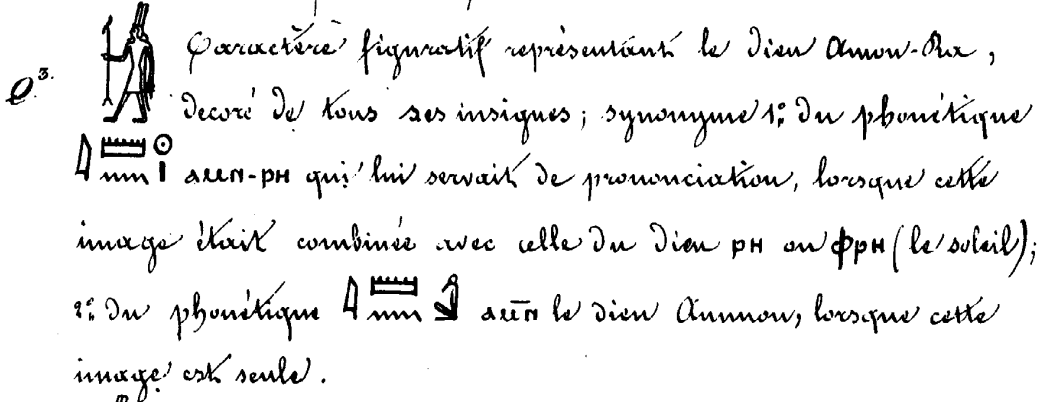 Q³. 𓁩 Caractère figuratif représentant le dieu Amon-Ra,
decoré de tous ses insignes; synonyme 1º: du phonétique
𓇋𓏠𓈖𓇳𓏤 ⲁⲙⲛ-ⲣⲏ qui lui servait de prononciation, lorsque cette
image était combinée avec celle du dieu ⲣⲏ ou ⲫⲣⲏ (le soleil);
2º: du phonétique 𓇋𓏠𓈖𓀭 ⲁⲙ̅ⲛ̅ le dieu Ammon, lorsque cette
image est seule.